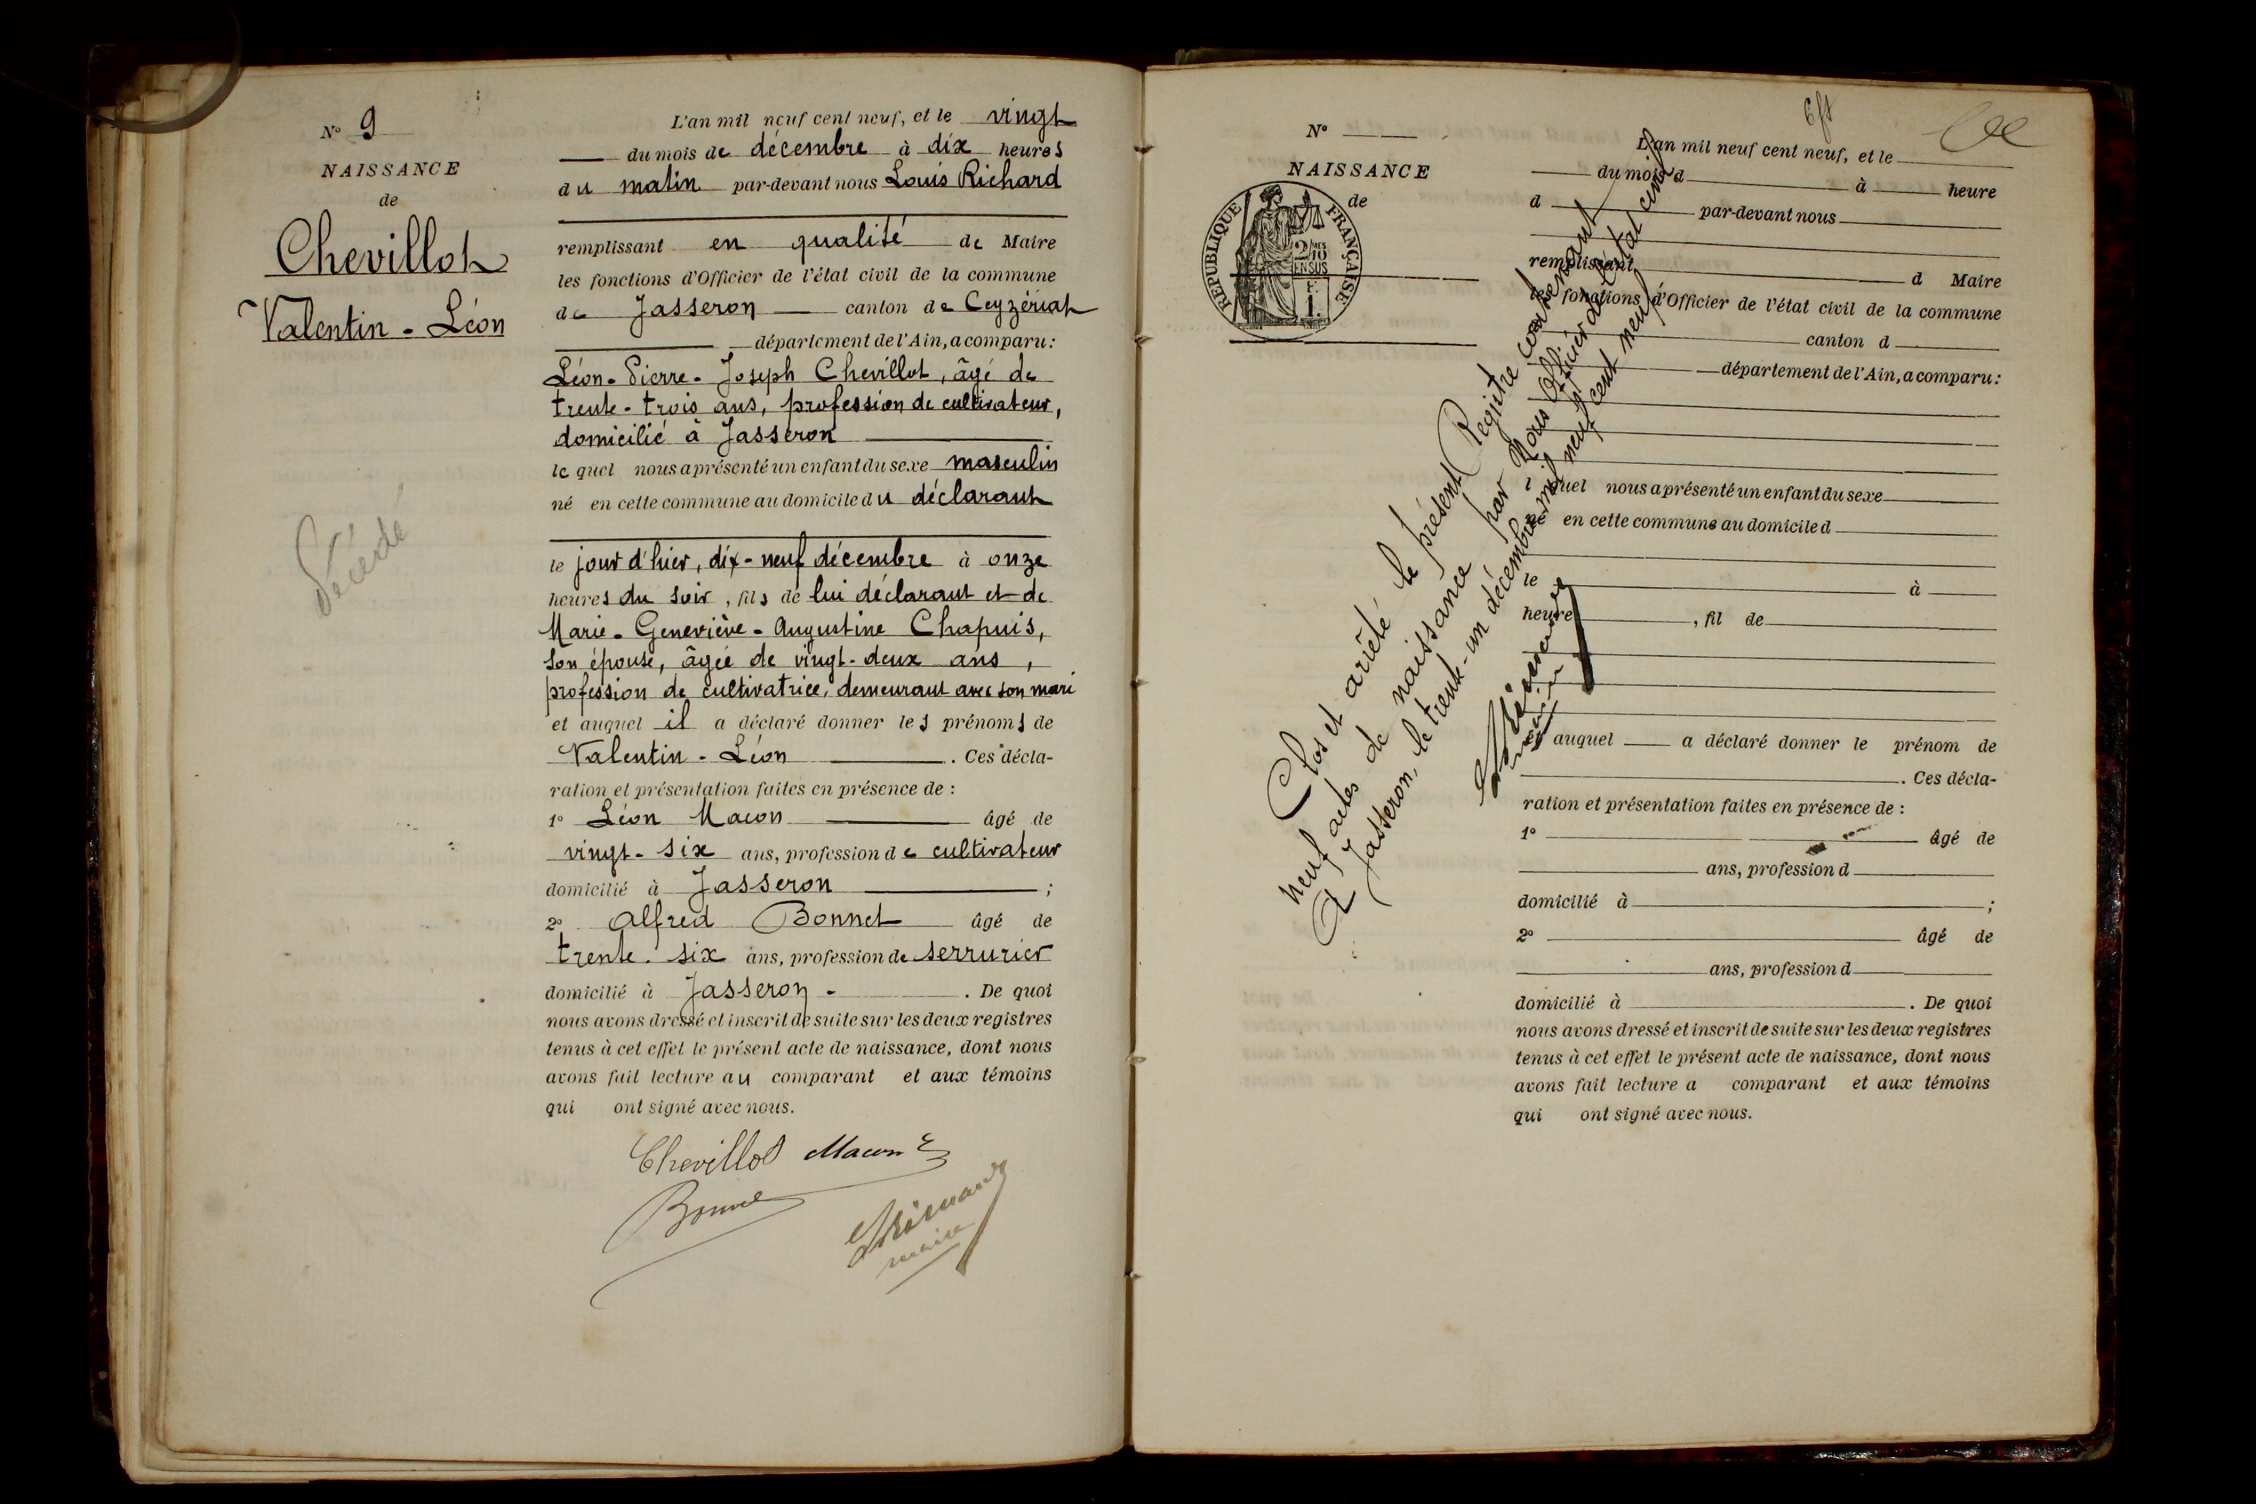 N° 9
NAISSANCE
de
Chevillot
Valentin - Léon
Décédé
L'an mil neuf cent neuf, et le vingt
du mois de décembre à dix heures
du matin par-devant nous Louis Richard
remplissant en qualité de Maire
les fonctions d'Officier de l'état civil de la commune
de Jasseron canton de Ceyzériat
département de l'Ain, a comparu :
Léon - Pierre - Joseph Chevillot, âgé de
trente - trois ans, profession de cultivateur,
domicilié à Jasseron
le quel nous a présenté un enfant du sexe masculin
né en cette commune au domicile du déclarant
le jour d'hier, dix - neuf décembre à onze
heures du soir, fils de lui déclarant et de
Marie - Geneviève - Augustine Chapuis,
son épouse, âgée de vingt - deux ans,
profession de cultivatrice, demeurant avec son mari
et auquel il a déclaré donner les prénoms de
Valentin - Léon . Ces décla-
ration et présentation faites en présence de :
1° Léon Macon âgé de
vingt - six ans, profession de cultivateur
domicilié à Jasseron ;
2° Alfred Bonnet âgé de
trente - six ans, profession de serrurier
domicilié à Jasseron - . De quoi
nous avons dressé et inscrit de suite sur les deux registres
tenus à cet effet le présent acte de naissance, dont nous
avons fait lecture au comparant et aux témoins
qui ont signé avec nous.
Chevillot Macon
Bonnet
maire
N°
NAISSANCE
de
RÉPUBLIQUE FRANÇAISE
2/10
EN SUS
L'an mil neuf cent neuf, et le
du mois d à heure
d par-devant nous
remplissant d Maire
les fonctions d'Officier de l'état civil de la commune
canton d
département de l'Ain, a comparu :
l quel nous a présenté un enfant du sexe
né en cette commune au domicile d
le à
heure , fil de
et auquel a déclaré donner le prénom de
. Ces décla-
ration et présentation faites en présence de :
1° âgé de
ans, profession d
domicilié à ;
2° âgé de
ans, profession d
domicilié à . De quoi
nous avons dressé et inscrit de suite sur les deux registres
tenus à cet effet le présent acte de naissance, dont nous
avons fait lecture a comparant et aux témoins
qui ont signé avec nous.
Clos et arrêté le présent Registre contenant
neuf actes de naissance par Nous Officier de l'état civil
A Jasseron, le trente - un décembre mil neuf cent neuf